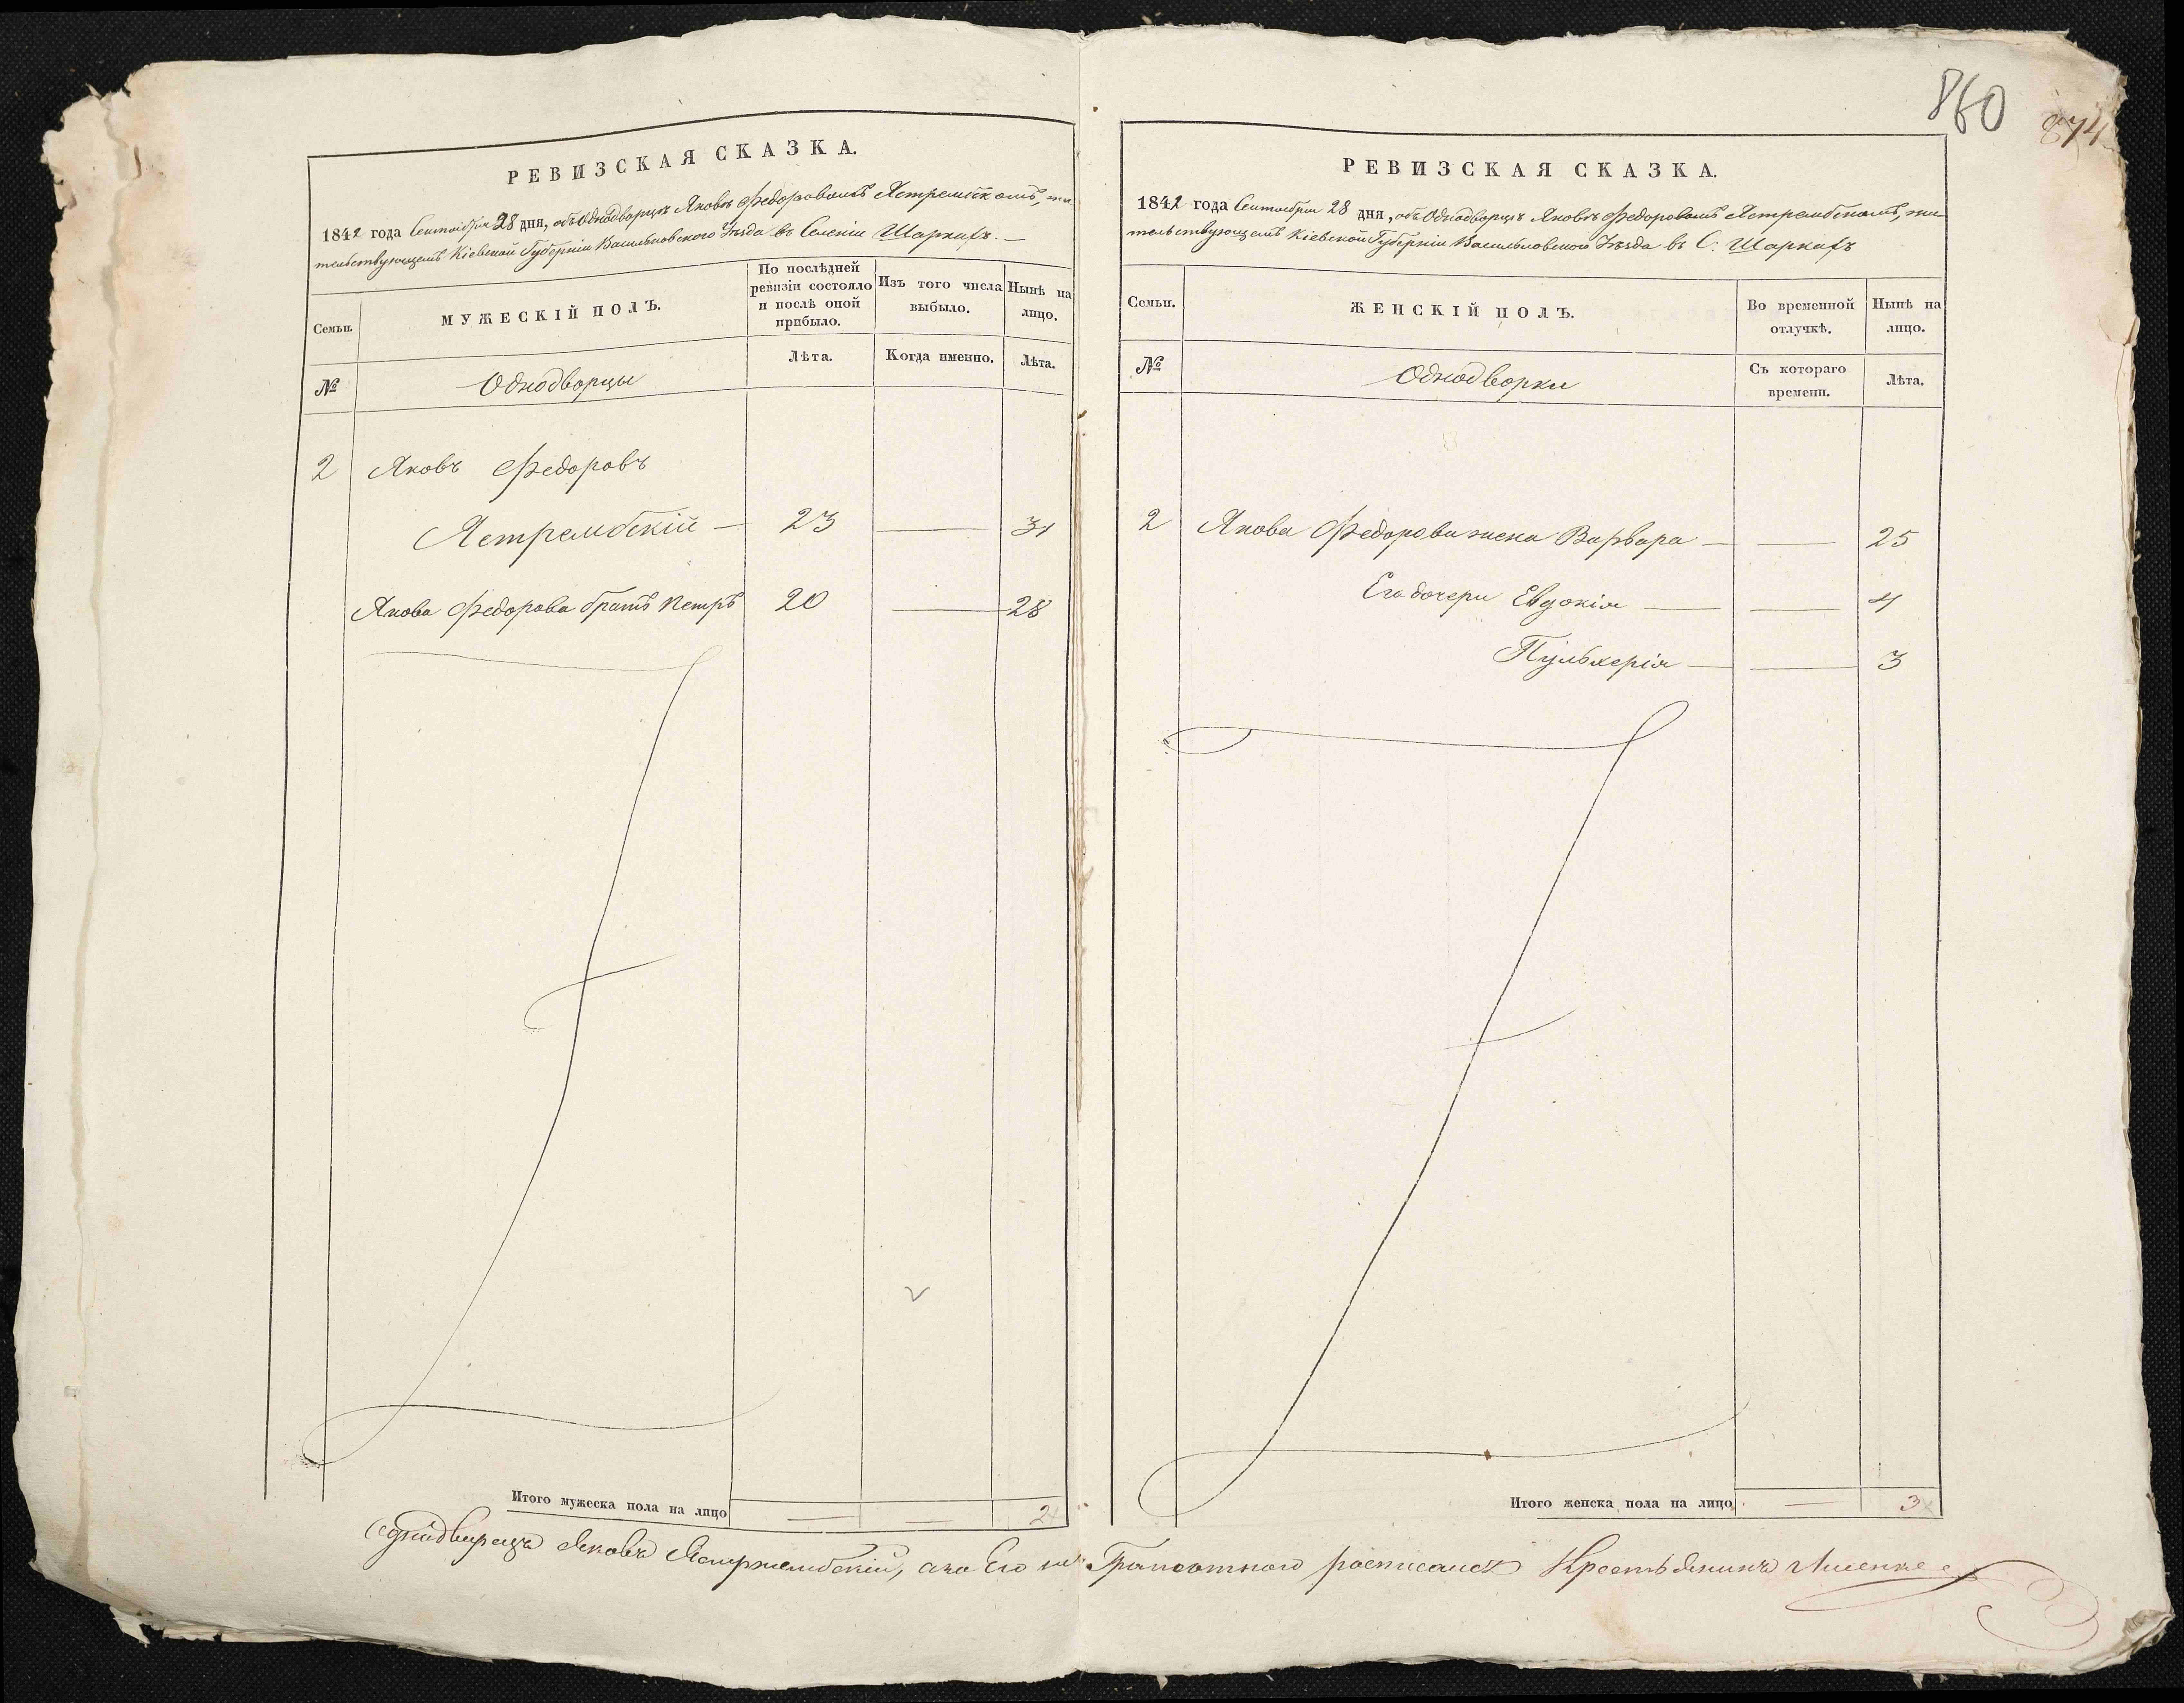 860
874
РЕВИЗСКАЯ СКАЗКА.
1842 года Сентября 28 дня, объ Однодворцѣ Яковѣ Федоровомъ Ястрембскомъ, жи-
тельствующемъ Кіевской Губерніи Васильковскаго Уѣзда въ Селеніи Шаркахъ. —
Семьи.
МУЖЕСКІЙ ПОЛЪ.
По послѣдней
ревизіи состояло
и послѣ оной
прибыло.
Изъ того числа
выбыло.
Нынѣ на
лицо.
№
Однодворцы
Лѣта.
Когда именно.
Лѣта.
2 Яковъ Федоровъ
Ястрембскій — 23 — 31
Якова Федорова братъ Петръ 20 — 28
Итого мужеска пола на лицо — — 2
РЕВИЗСКАЯ СКАЗКА.
1842 года Сентября 28 дня, объ Однодворцѣ Яковѣ Федоровомъ Ястрембскомъ, жи-
тельствующемъ Кіевской Губерніи Васильковскаго Уѣзда въ С. Шаркахъ
Семьи.
ЖЕНСКІЙ ПОЛЪ.
Во временной
отлучкѣ.
Нынѣ на
лицо.
№
Однодворки
Съ котораго
времени.
Лѣта.
2 Якова Федорова жена Варвара — — 25
Его дочери Евдокія — — 4
Пульхерія — — 3
Итого женска пола на лицо — 3
Однодворецъ Яковъ Ястржембскій, а за Его не Грамотнаго росписался Крестьянинъ